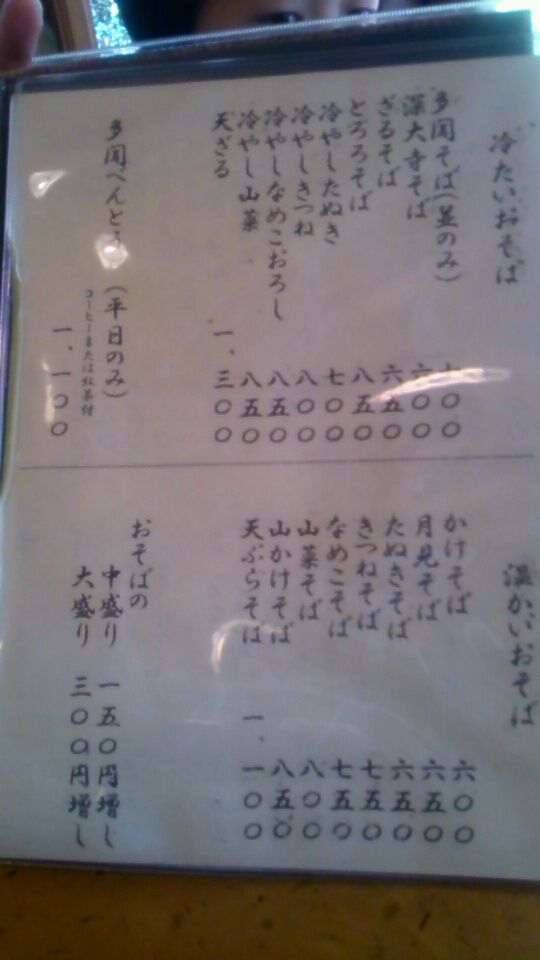 冷たいおそば
多聞そば(並のみ) 〇〇
深大寺そば 六〇〇
ざるそば 六五〇
とろろそば 八五〇
冷やしたぬき 七〇〇
冷やしきつね 八〇〇
冷やしなめこおろし 八五〇
冷やし山菜 八五〇
天ざる 一、三〇〇
多聞べんとう (平日のみ)
コーヒーまたは紅茶付
一、一〇〇
温かいおそば
かけそば 六〇〇
月見そば 六五〇
たぬきそば 六五〇
きつねそば 七五〇
なめこそば 七五〇
山菜そば 八〇〇
山かけそば 八五〇
天ぷらそば 一、一〇〇
おそばの
中盛り 一五〇円増し
大盛り 三〇〇円増し